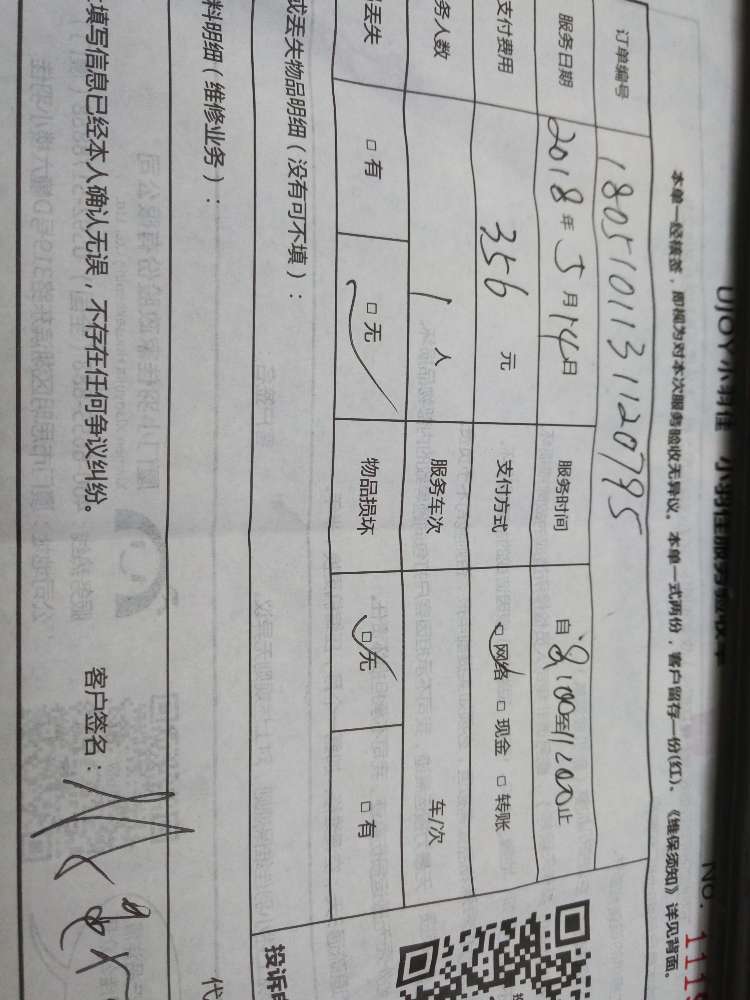 UJOY小羽佳 小羽佳服务验收单
No. 111
本单一经核签，即视为对本次服务验收无异议。本单一式两份，客户留存一份(红)。《维保须知》详见背面。
订单编号 180510113112079S
服务日期 2018年5月14日 服务时间 自8:00至11:00止
支付费用 356元 支付方式 □网络 □现金 □转账
务人数 1人 服务车次 车/次
丢失 □有 □无 物品损坏 □无 □有
或丢失物品明细（没有可不填）：
料明细（维修业务）：
填写信息已经本人确认无误，不存在任何争议纠纷。 客户签名：
投诉
代